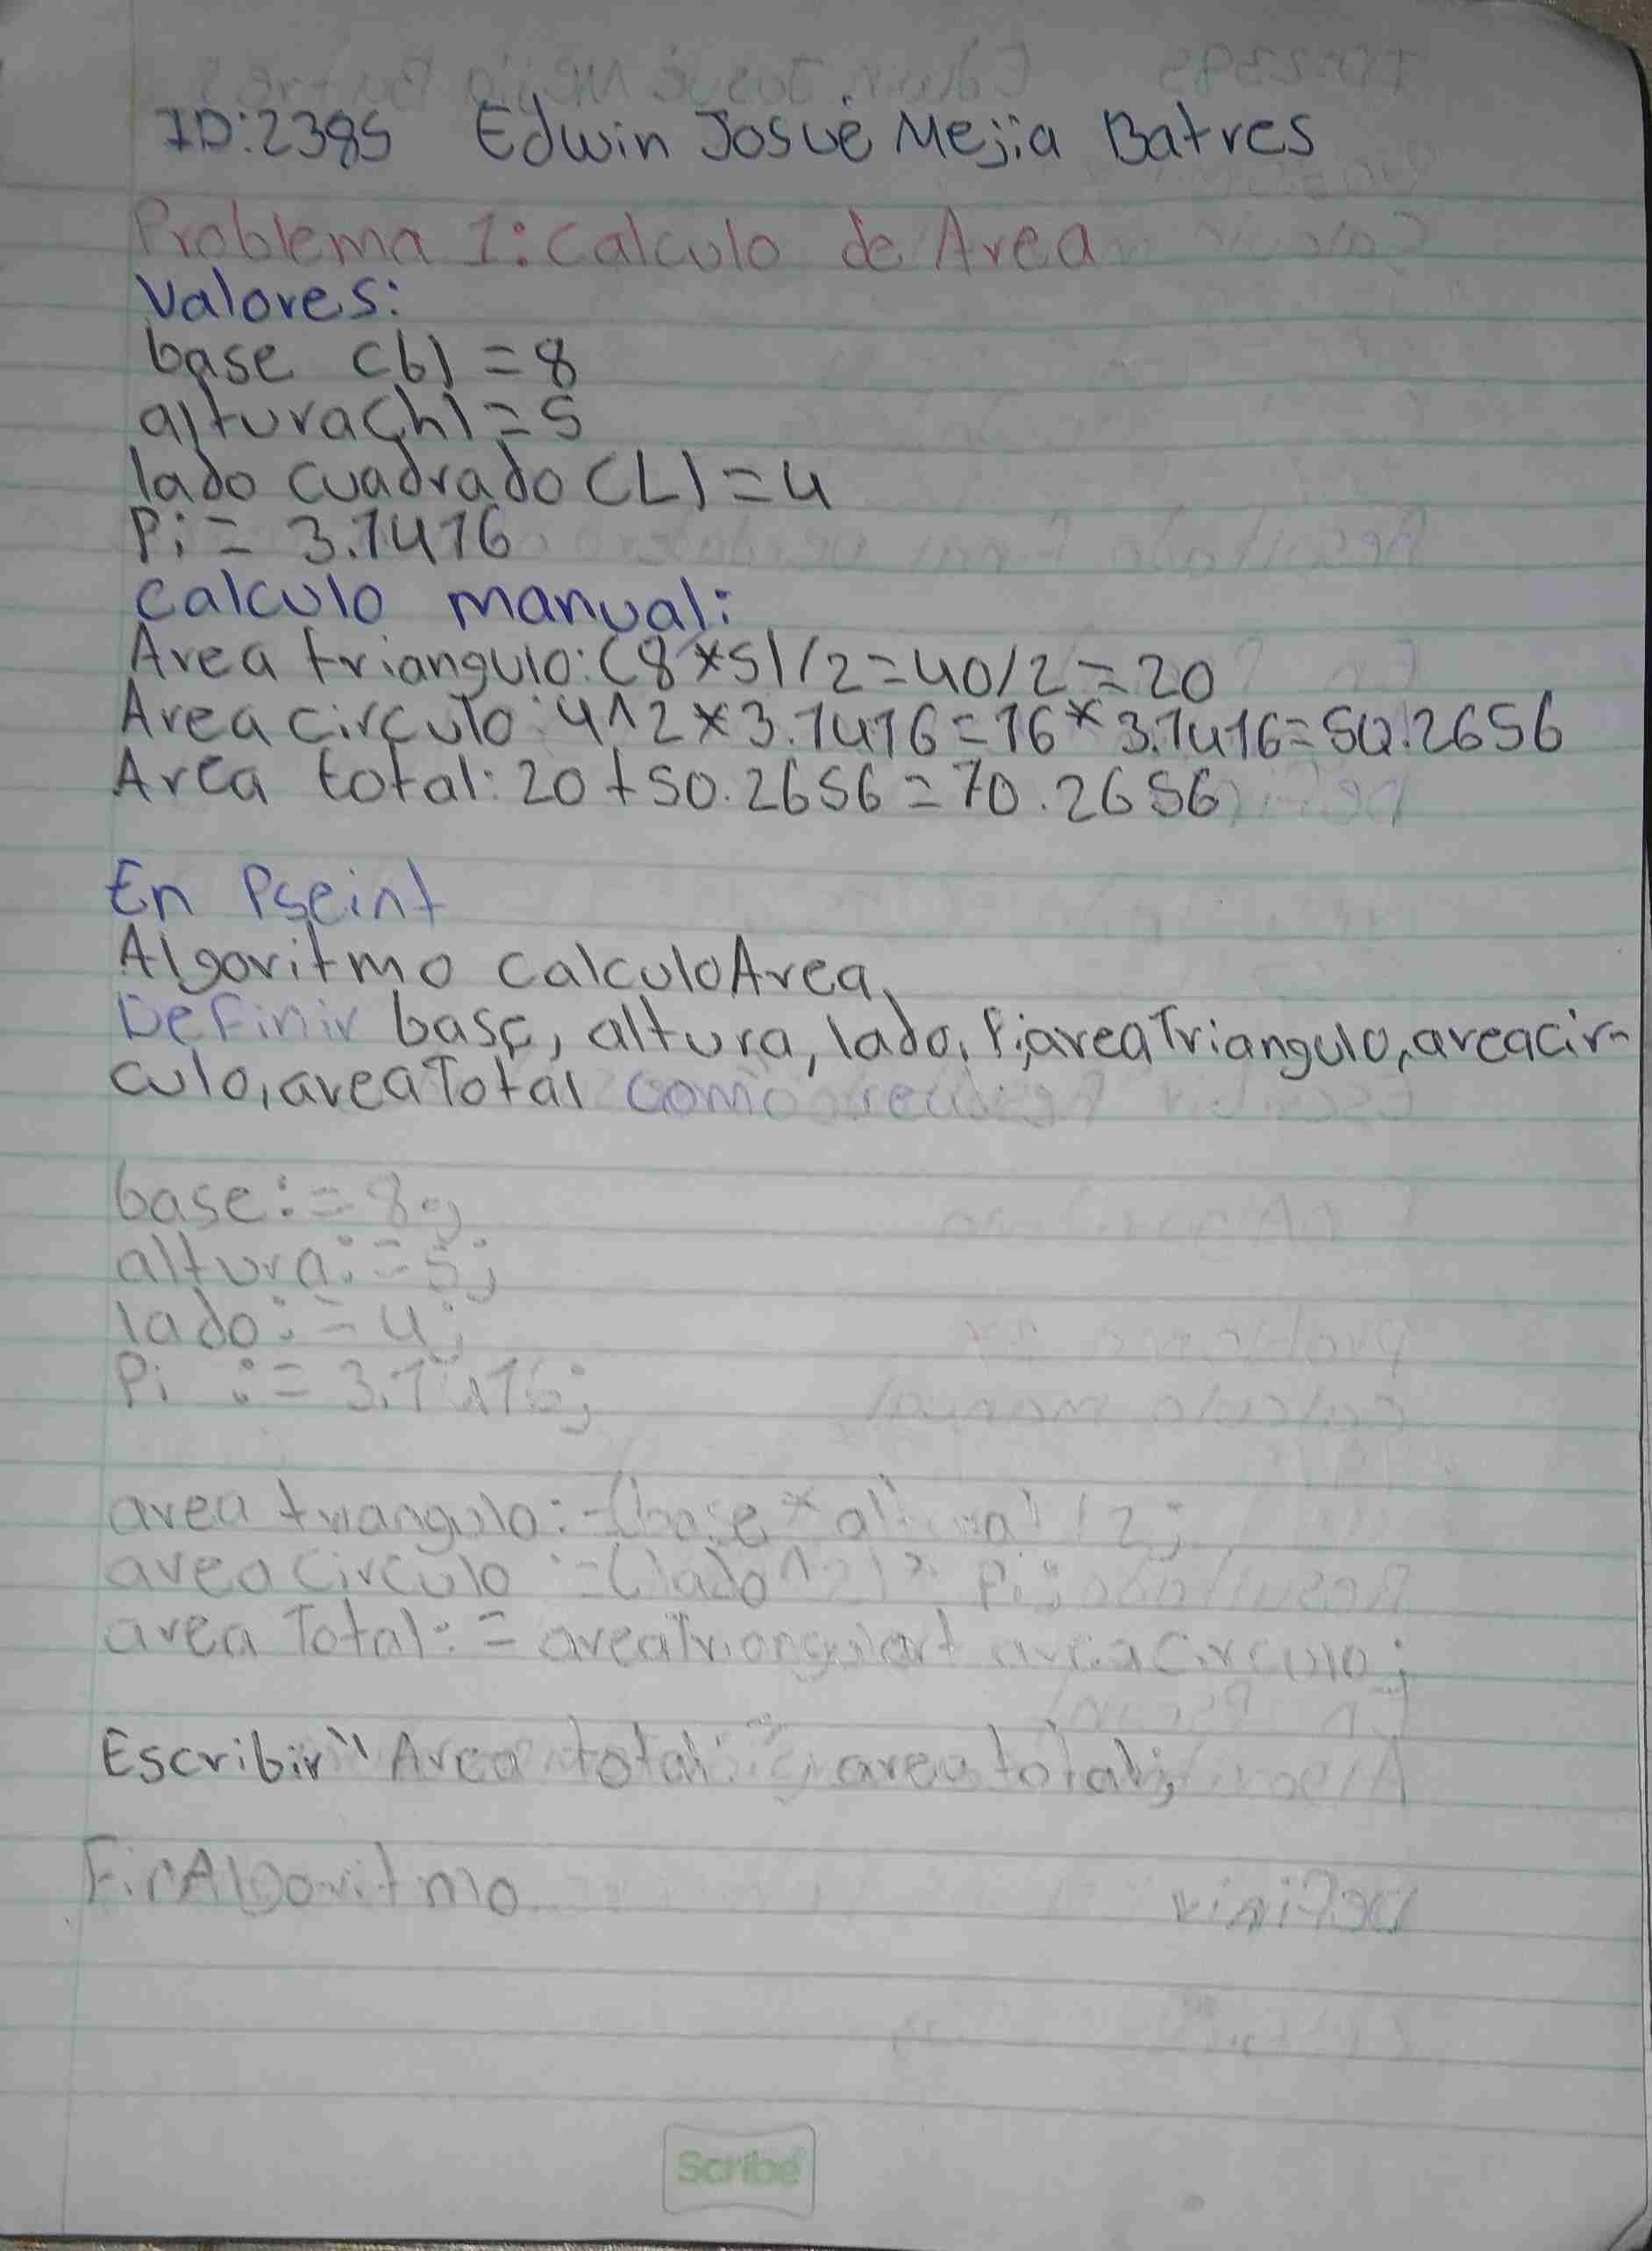 ID:2385 Edwin Josué Mejia Batres
Problema 1: Calculo de Area
Valores:
base (b) = 8
altura(h) = 5
lado cuadrado (L) = 4
Pi = 3.1416
Calculo manual:
Area triangulo: (8*5)/2=40/2=20
Area circulo: 4^2*3.1416=16*3.1416=50.2656
Area total: 20+50.2656=70.2656
En Pseint
Algoritmo CalculoArea
Definir base, altura, lado, Pi, areaTriangulo, areacir-
culo, areaTotal como real;
base:=8;
altura:=5;
lado:=4;
Pi :=3.1416;
area triangulo:=(base*altura)/2;
area circulo :=(lado^2)* Pi;
area Total:= areaTriangulo+ areaCirculo;
Escribir "Area total: ", area total;
FinAlgoritmo
Scribe